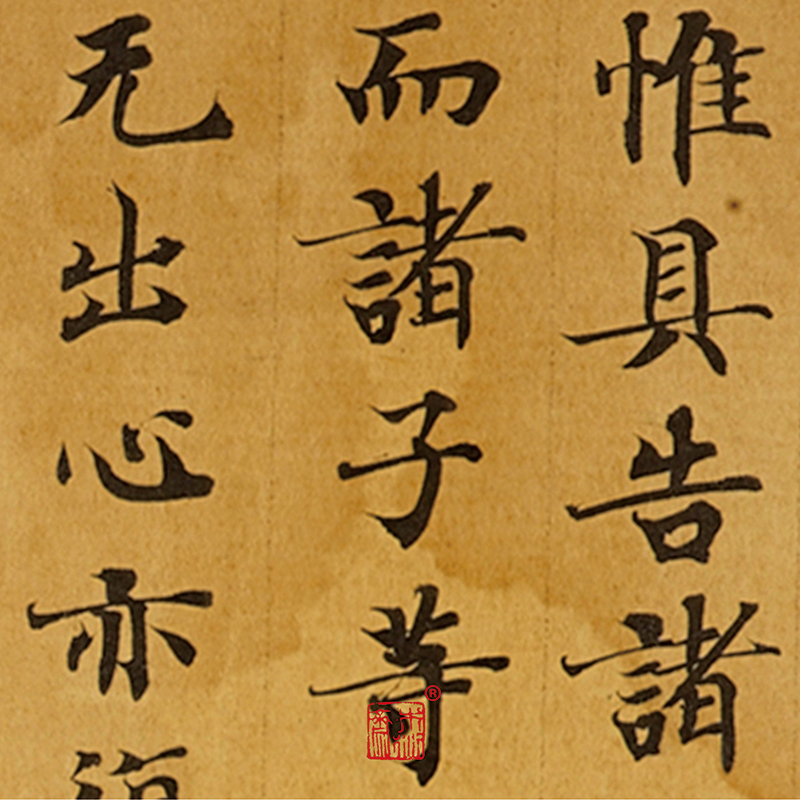 惟具告諸
而諸子等
无出心亦
®